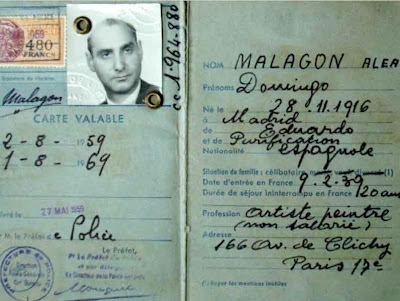 1959
480
FRANCS
cc 1.964.880
Signature du titulaire,
Malagon
CARTE VALABLE
2-8-1959
1-8-1969
27 MAI 1959
Pr M. le Préfet de Police
Le Préfet,
Pr Le Préfet de Police
et par délégation
PREFECTURE DE POLICE
NOM MALAGON ALEA
Prénoms Domingo
Né le 28.11.1916
à Madrid
de Eduardo
et de Purificación
Nationalité espagnole
Situation de famille : célibataire, marié, veuf, divorcé (1)
Date d'entrée en France 9.2.39
Durée de séjour ininterrompu en France 20 ans
Profession Artiste peintre
(non salarié)
Adresse
166 Av. de Clichy
Paris 17e
(1) Rayer les mentions inutiles